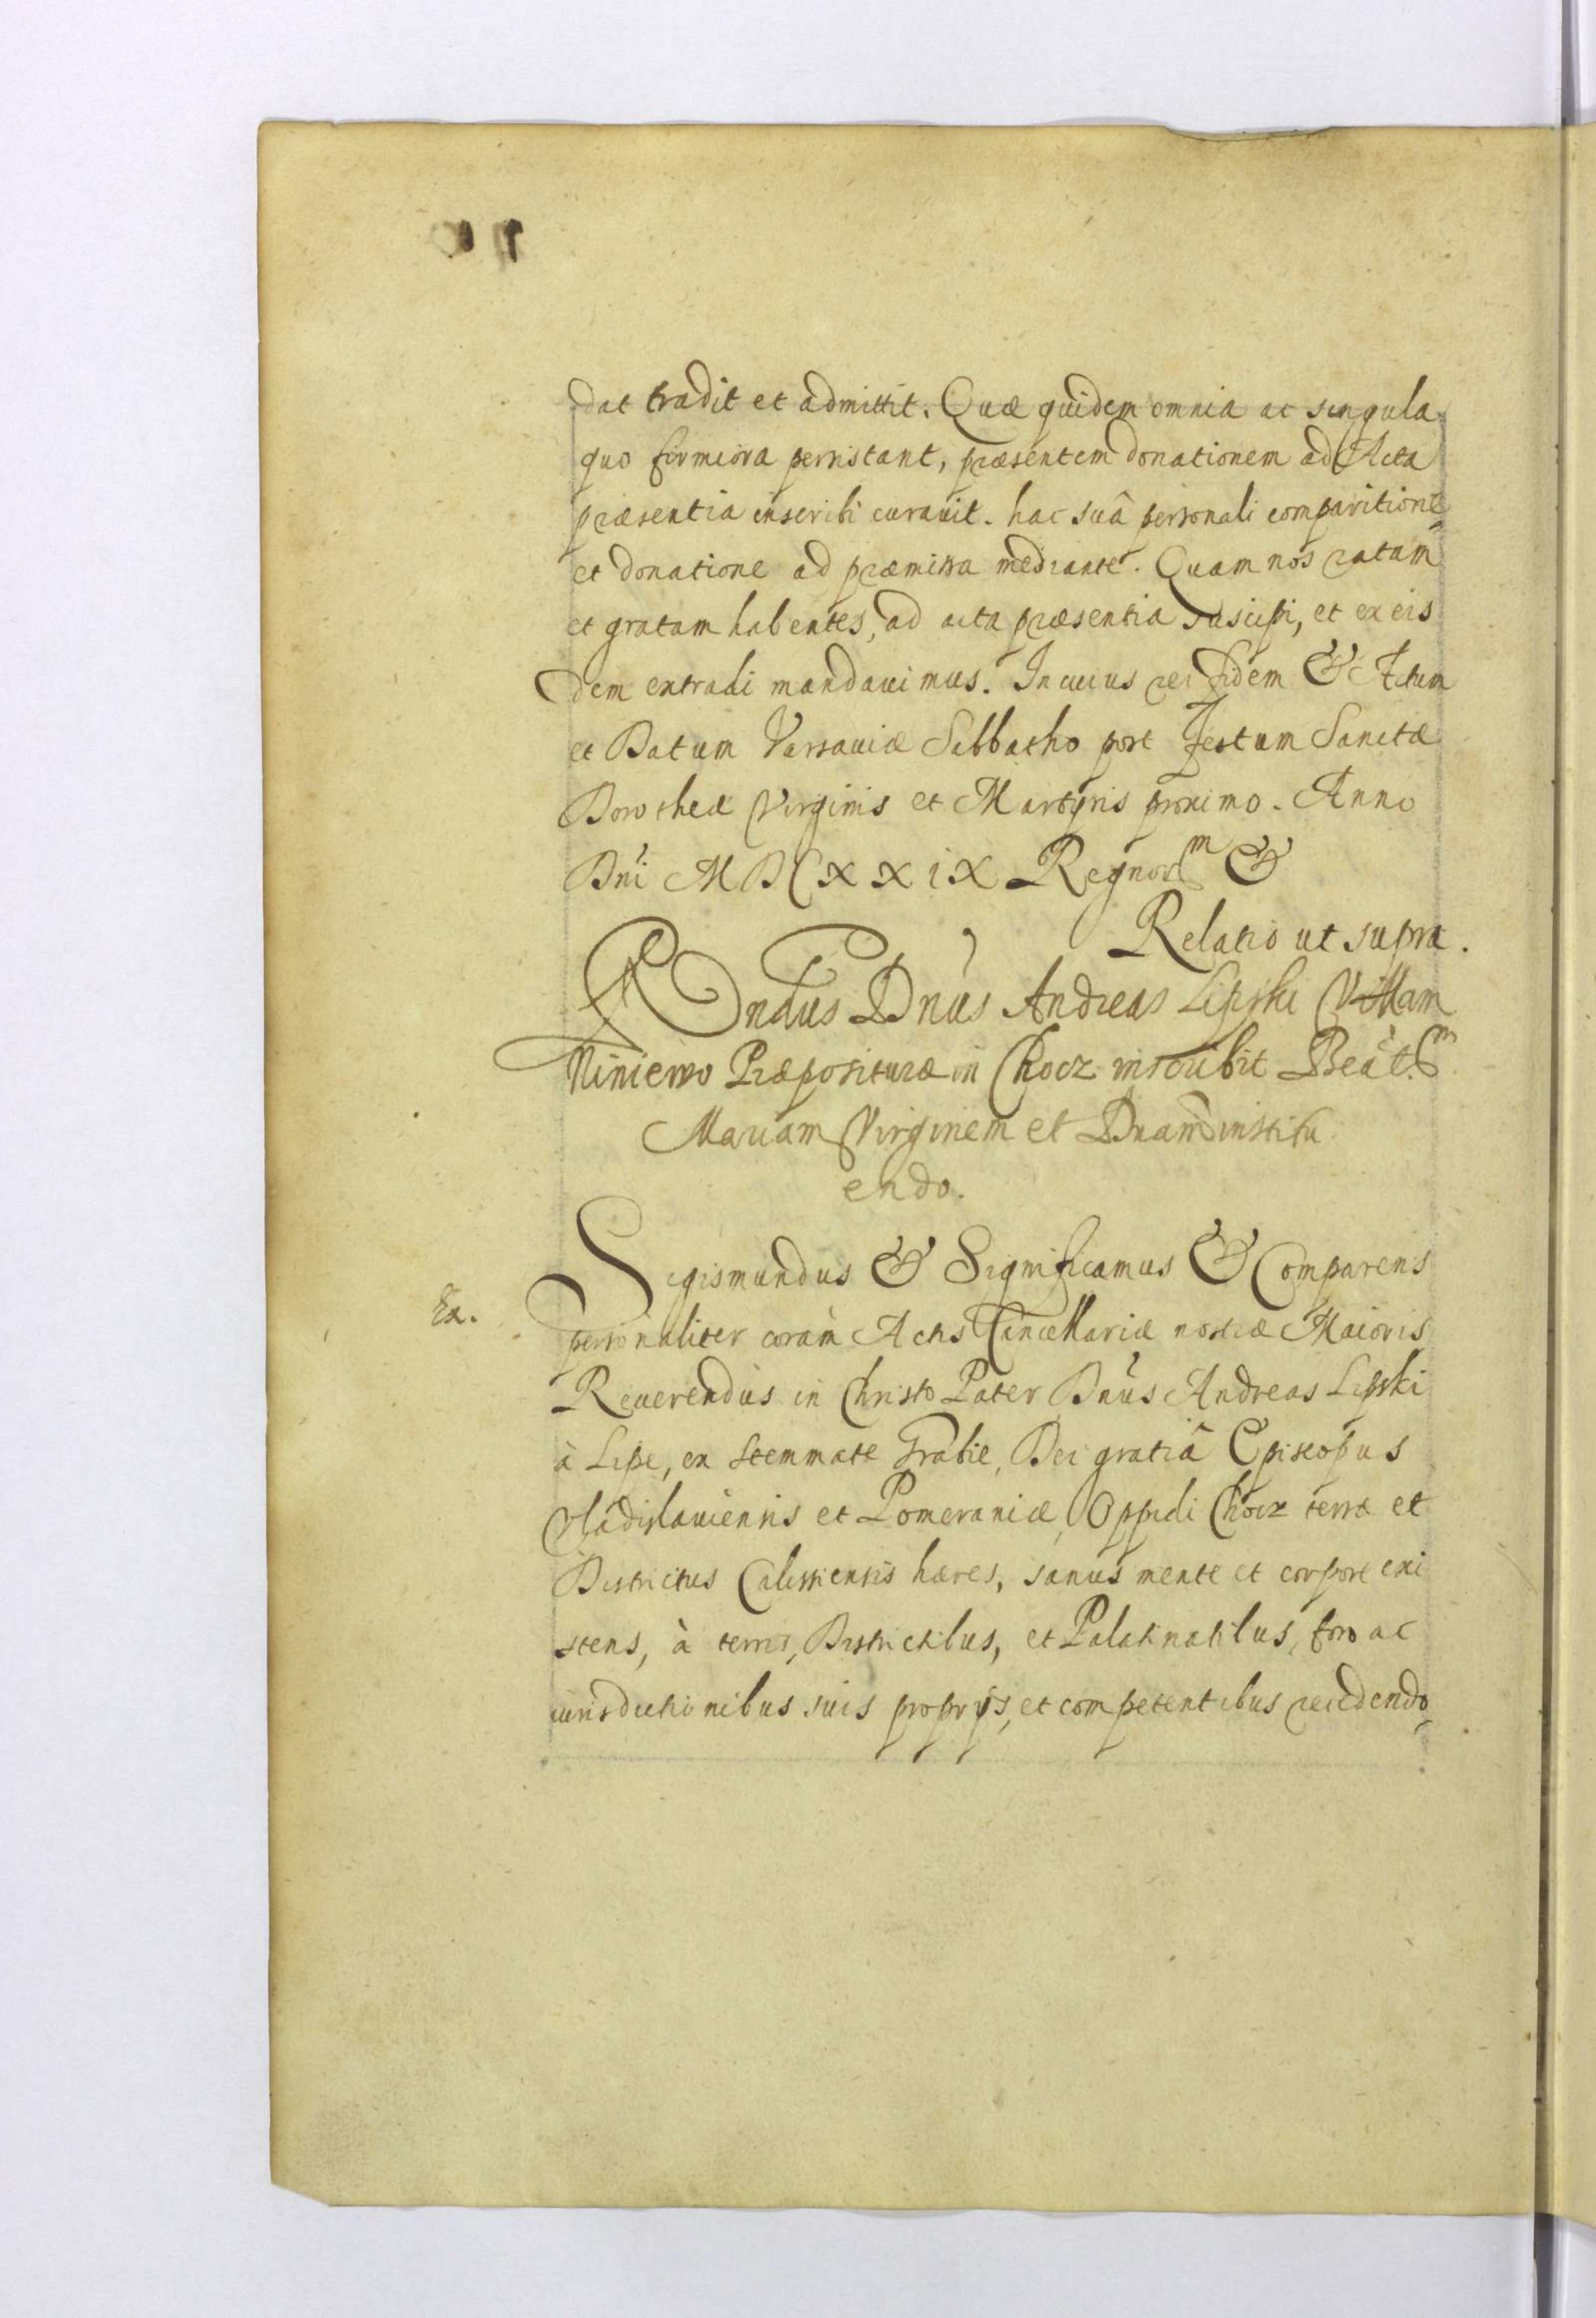 dat tradit et admittit. Quæ quidem omnia ac singula
quo firmiora persistant, præsentem donationem ad Acta
præsentia inscribi curauit. hac suâ personali comparitione
et donatione ad præmissa mediante. Quam nos ratam
et gratam habentes, ad acta præsentia suscipi, et ex eis
dem extradi mandauimus. In cuius rei fidem & Actum
et Datum Varsauiæ Sabbatho post Festum Sanctæ
Dorotheæ Virginis et Martyris proximo. Anno
Dni MDCXXiX Regnor m &
Relatio ut supra.
Rndus Dnus Andreas Lipski Villam
Niniewo Præposituræ in Chocz inscribit Beat m
Mariam Virginem et Dnam institu
endo.
Sigismundus & Significamus & Comparens
Ex.
personaliter coram Actis Cancellariæ nostræ Maioris
Reuerendus in Christo Pater Dnus Andreas Lipski
à Lipe, ex stemmate Grabie, Dei gratiâ Episcopus
Vladislauiensis et Pomeraniæ, Oppidi Chocz terræ et
Districtus Calissiensis hæres, sanus mente et corpore exi
stens, à terris, Districtibus, et Palatinatibus, foro ac
iurisdictionibus suis proprijs, et competentibus recedendo